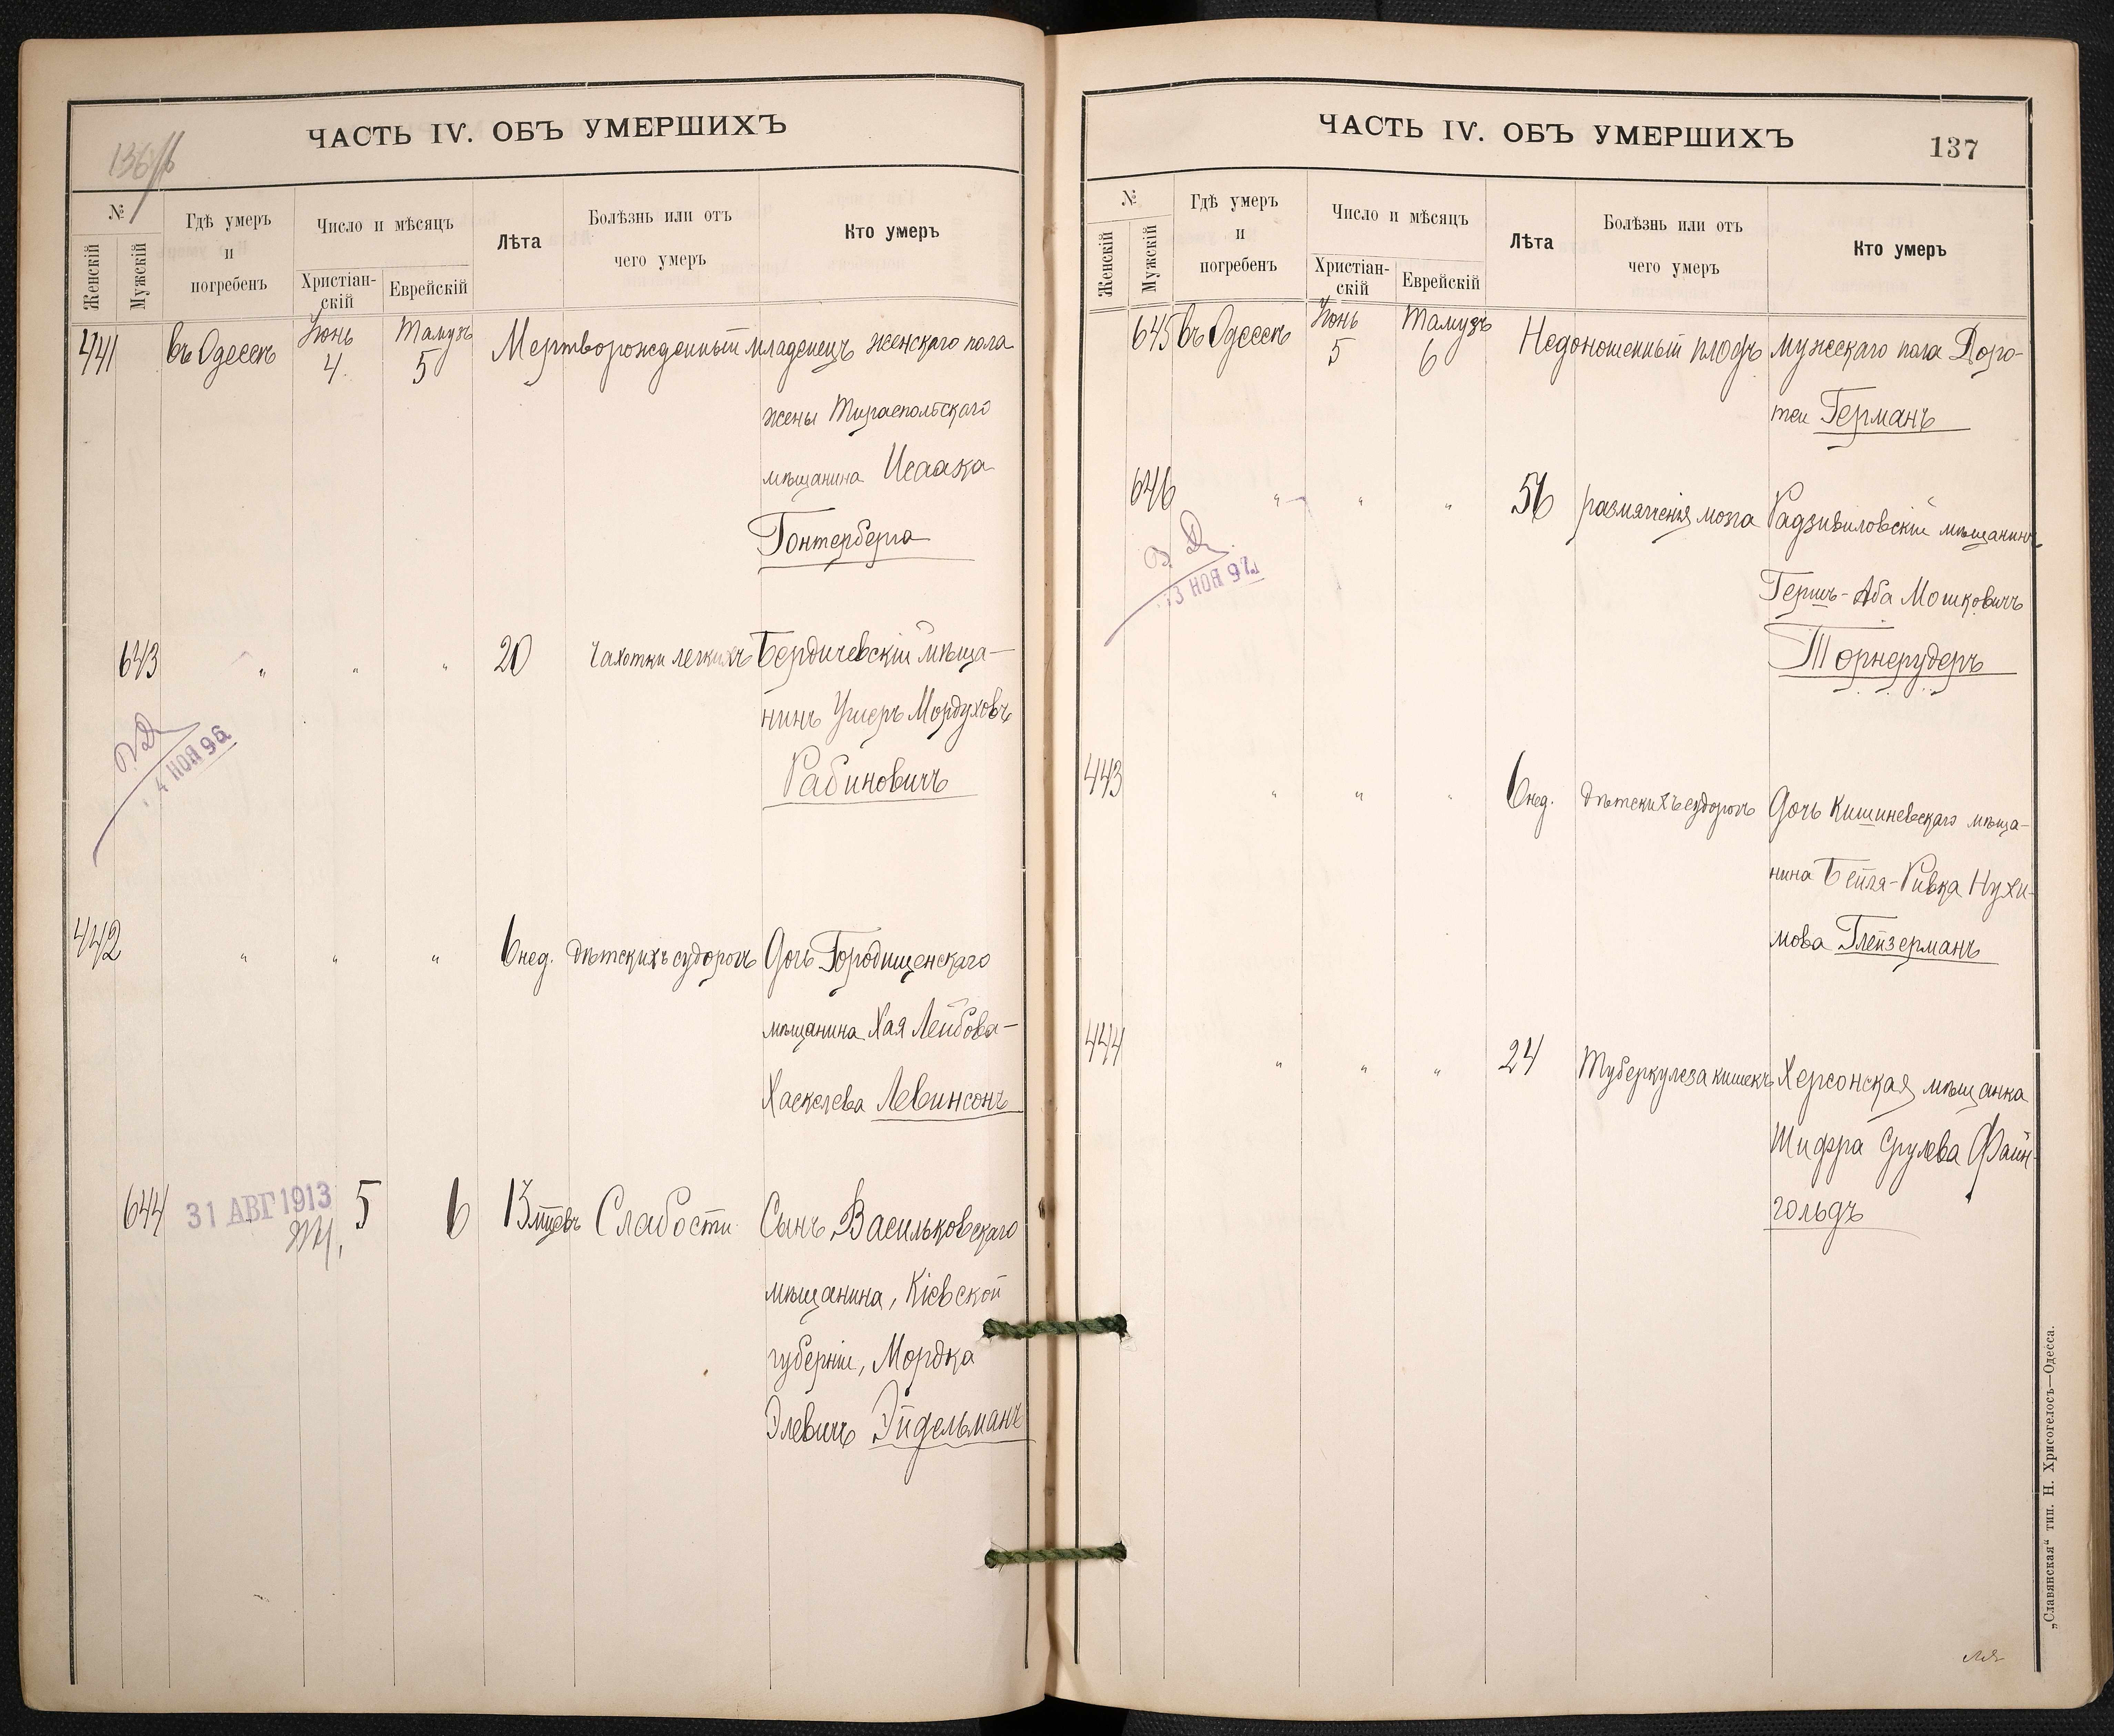 136/б
ЧАСТЬ IV. ОБЪ УМЕРШИХЪ
№
Женскій
Мужскій
Гдѣ умеръ
и
погребенъ
Число и мѣсяцъ
Христіан-
скій
Еврейскій
Лѣта
Болѣзнь или отъ
чего умеръ
Кто умеръ
441 въ Одессѣ Іюнь 4. Тамузъ 5 Мертворожденный младенецъ женскаго пола
жены Тираспольскаго
мѣщанина Исаака
Гонтерберга
643 " " " 20 Чахотки легкихъ Бердичевскій мѣща-
нинъ Ушеръ Мордуховъ
Рабиновичъ
4 НОЯ 96
442 " " " 6 нед. дѣтскихъ судорогъ Дочь Городищенскаго
мѣщанина Хая Лейбова-
Хаскелева Левинсонъ
644 31 АВГ 1913 5 6 13 мѣсцевъ Слабости Сынъ Васильковскаго
мѣщанина, Кіевской
губерніи, Мордка
Элевичъ Эйдельманъ
ЧАСТЬ IV. ОБЪ УМЕРШИХЪ
137
№
Женскій
Мужскій
Гдѣ умеръ
и
погребенъ
Число и мѣсяцъ
Христіан-
скій
Еврейскій
Лѣта
Болѣзнь или отъ
чего умеръ
Кто умеръ
645 въ Одессѣ Іюнь 5 Тамузъ 6 Недоношенный плодъ мужескаго пола Доро-
теи Германъ
646 " " " 56 размягченія мозга Радзивиловскій мѣщанинъ
Гершъ-Аба Мошковичъ
Торнерудеръ
13 НОЯ 97
443 " " " 6 нед. дѣтскихъ судорогъ Дочь Кишиневскаго мѣща-
нина Бейля-Ривка Нухи-
мова Глейзерманъ
444 " " " 24 Туберкулеза кишекъ Херсонская мѣщанка
Шифра Срулева Файн-
гольдъ
„Славянская“ тип. Н. Хрисогелосъ—Одесса.